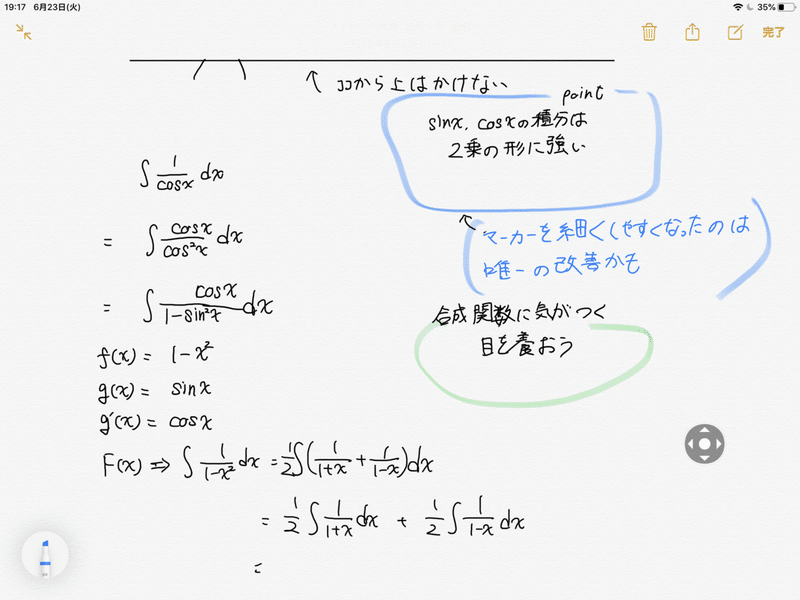 19:17 6月23日(火)
35%
完了
↑ ココから上はかけない
point
sinx, cosxの積分は
2乗の形に強い
∫ 1/cosx dx
= ∫ cosx/cos²x dx
↖ マーカーを細くしやすくなったのは
唯一の改善かも
= ∫ cosx/1-sin²x dx
合成関数に気がつく
目を養おう
f(x) = 1-x²
g(x) = sinx
g'(x) = cosx
F(x) ⇒ ∫ 1/1-x² dx = 1/2 ∫ (1/1+x + 1/1-x) dx
= 1/2 ∫ 1/1+x dx + 1/2 ∫ 1/1-x dx
=